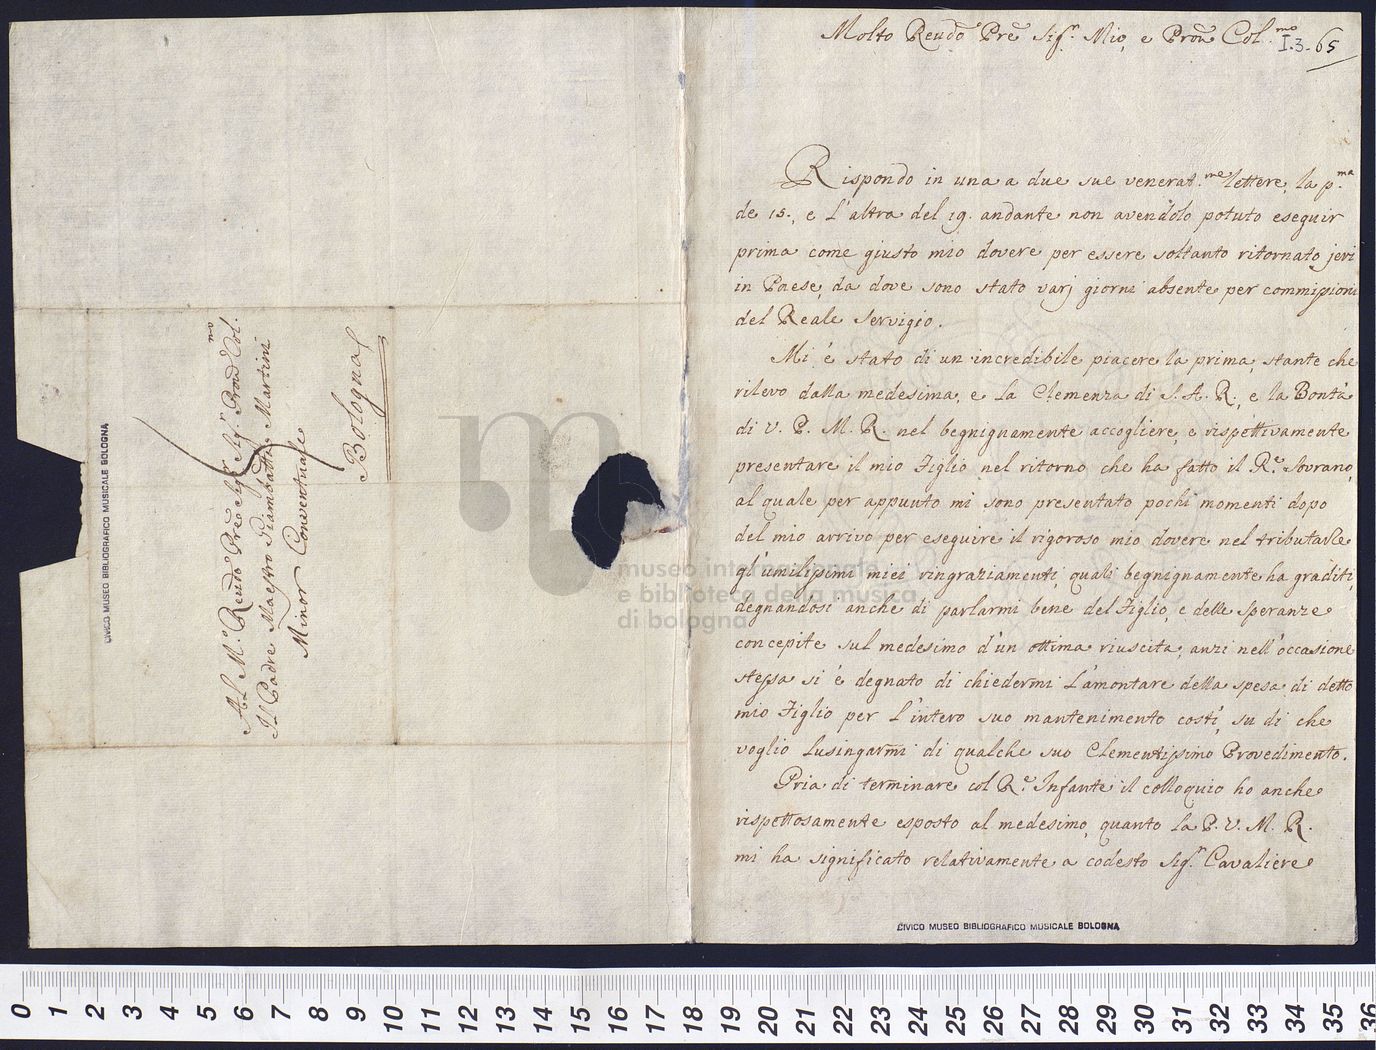 Molto Reudo Pre Sigr. Mio, e Pron Col.mo
I.3.65
Rispondo in una a due sue venerat.me lettere, la p.ma
de 15., e L'altra del 19. andante non avendolo potuto eseguir
prima come giusto mio dovere per essere soltanto ritornato jeri
in Paese, da dove sono stato varj giorni absente per commissioni
del Reale Servigio.
Mi è stato di un incredibile piacere la prima, stante che
rilevo dalla medesima, e La Clemenza di S. A. R., e la Bontà
di V. P. M. R. nel begnignamente accogliere, e rispettivamente
presentare il mio Figlio nel ritorno che ha fatto il R.e Sovrano,
al quale per appunto mi sono presentato pochi momenti dopo
del mio arrivo per eseguire il rigoroso mio dovere nel tributarle
gl'umilissimi miei ringraziamenti, quali begnignamente ha graditi,
degnandosi anche di parlarmi bene del Figlio, e delle speranze
concepite sul medesimo d'un ottima riuscita, anzi nell'occasione
stessa si è degnato di chiedermi L'amontare della spesa di detto
mio Figlio per l'intero suo mantenimento costì, su di che
voglio Lusingarmi di qualche suo Clementissimo Provedimento.
Pria di terminare col R.e Infante il colloquio ho anche
rispettosamente esposto al medesimo, quanto La P. V. M. R.
mi ha significato relativamente a codesto Sigr. Cavaliere
CIVICO MUSEO BIBLIOGRAFICO MUSICALE BOLOGNA
Al M.o Reudo Pre Sigr Sigr. Pron Col.mo
Il Padre Maestro Giambatta Martini
Minor Conventuale
Bologna
CIVICO MUSEO BIBLIOGRAFICO MUSICALE BOLOGNA
museo internazionale
e biblioteca della musica
di bologna
0 1 2 3 4 5 6 7 8 9 10 11 12 13 14 15 16 17 18 19 20 21 22 23 24 25 26 27 28 29 30 31 32 33 34 35 36